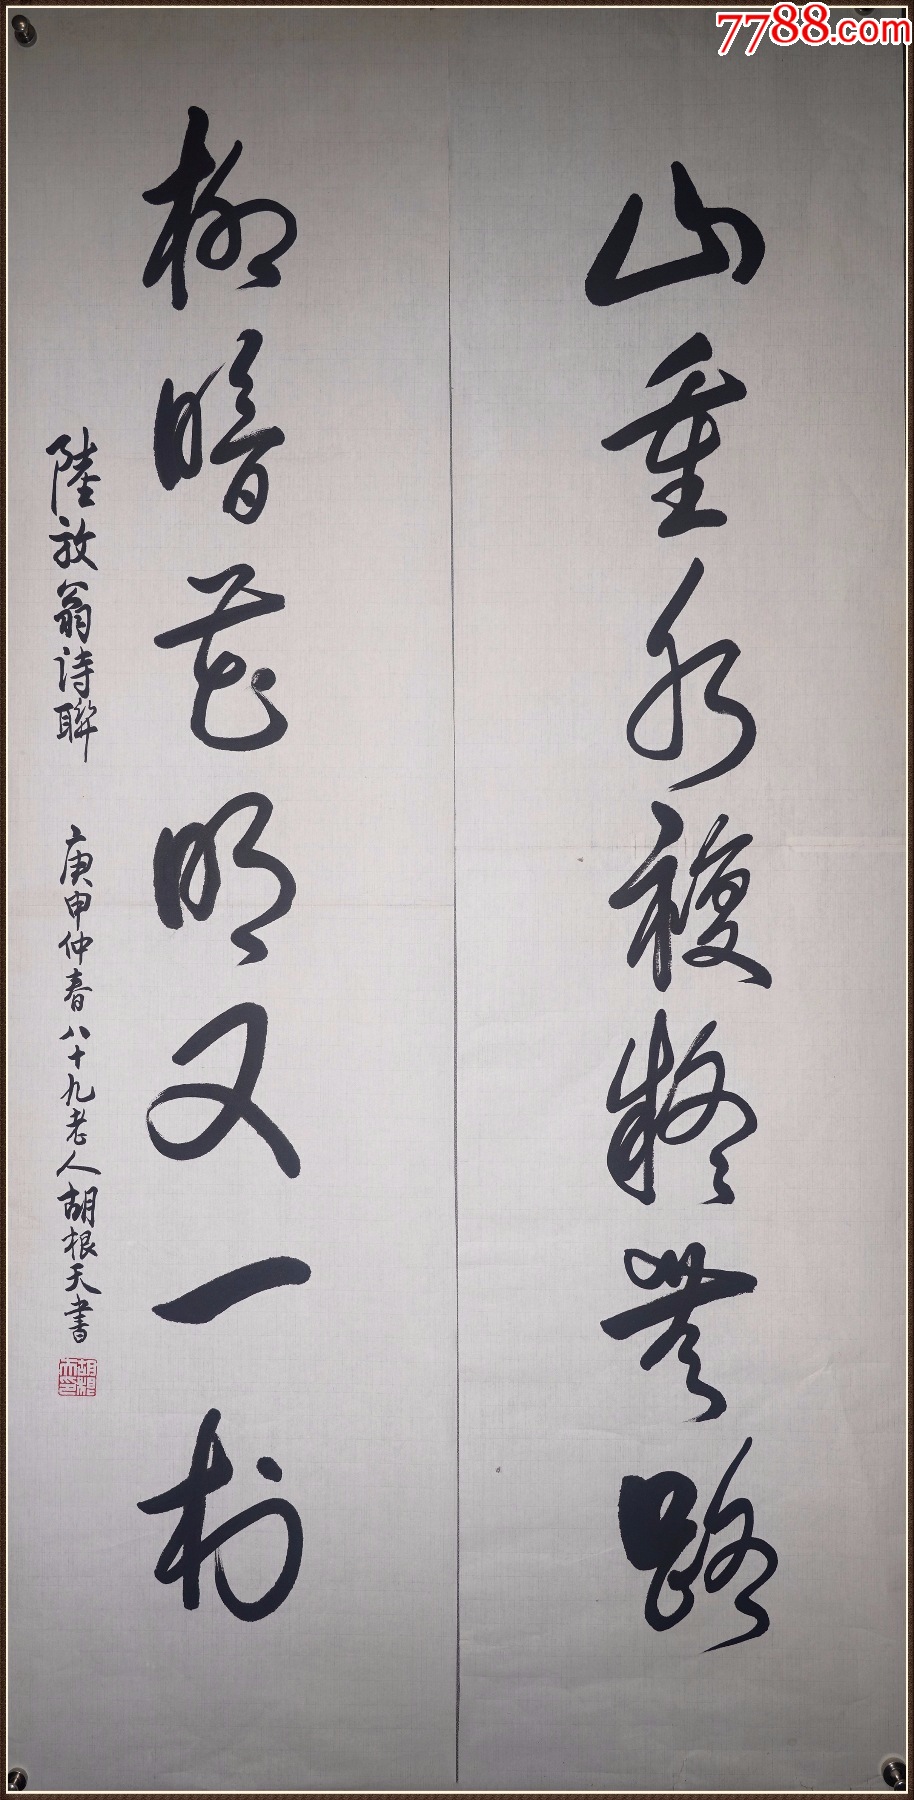 7788.com
山重水複疑無路
柳暗花明又一村
陸放翁詩聯 庚申仲春八十九老人胡根天書
胡根天印